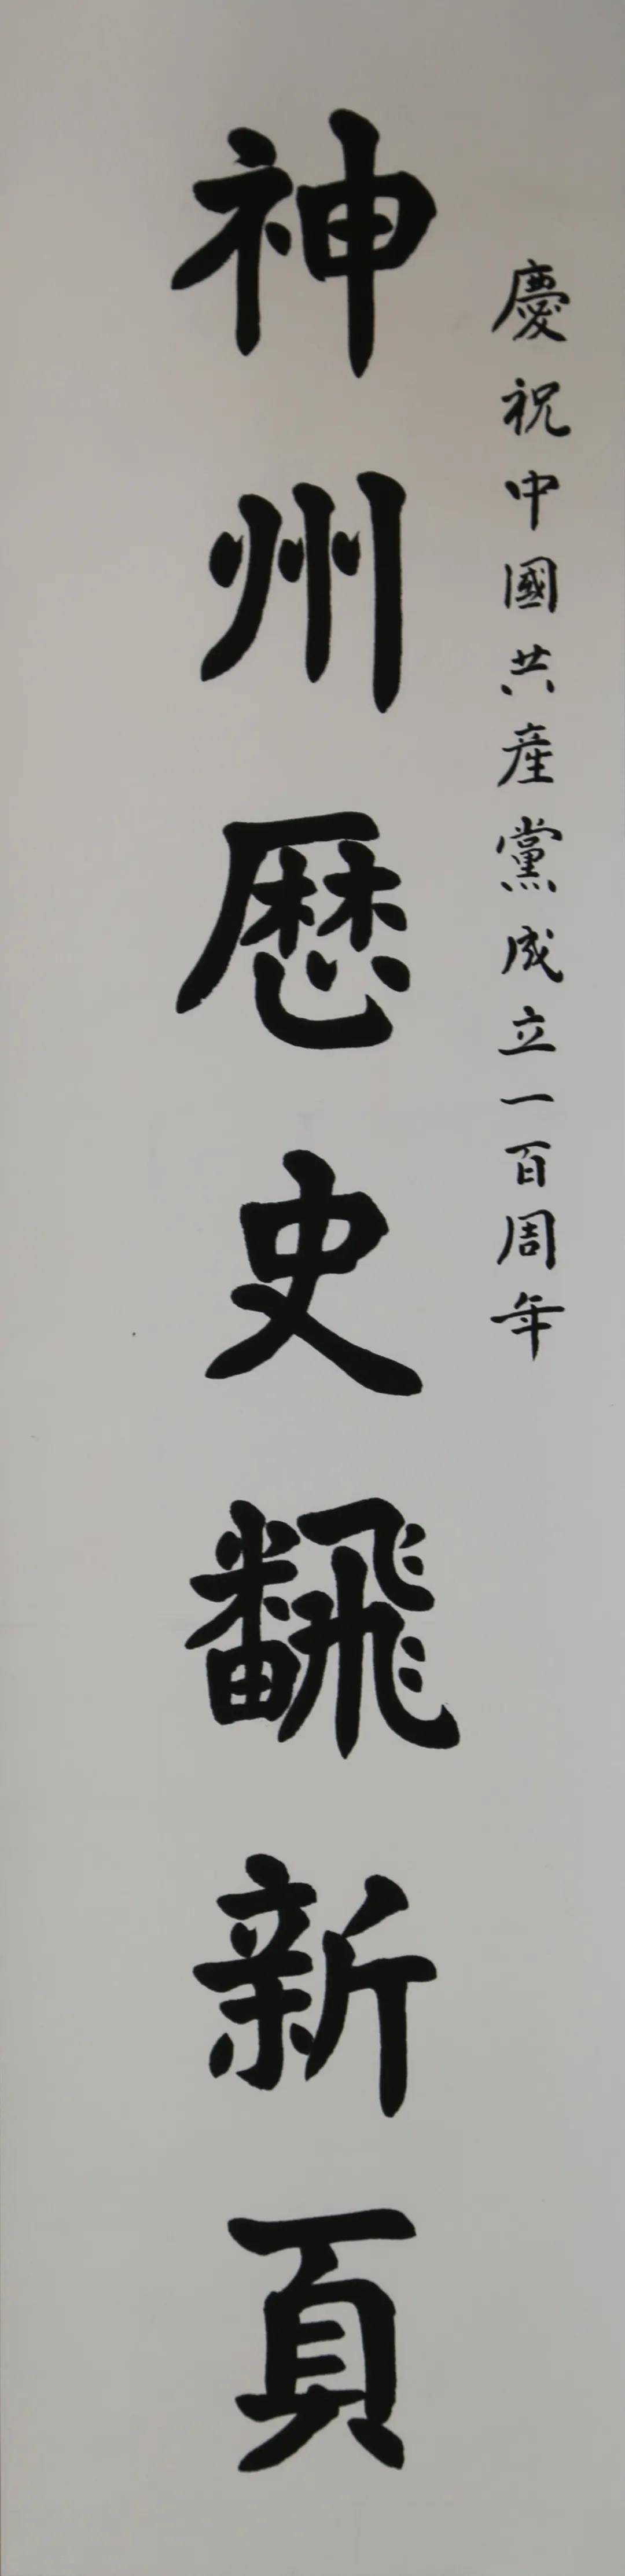 慶祝中國共産黨成立一百周年
神州歷史飜新頁